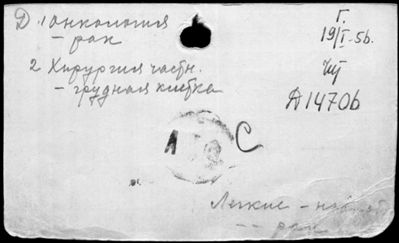 Д 1 Онкология
– рак
2 Хирургия частн.
– грудная клетка
Г.
19/I-56.
Д14706
Л С
Легкие –
– – рак